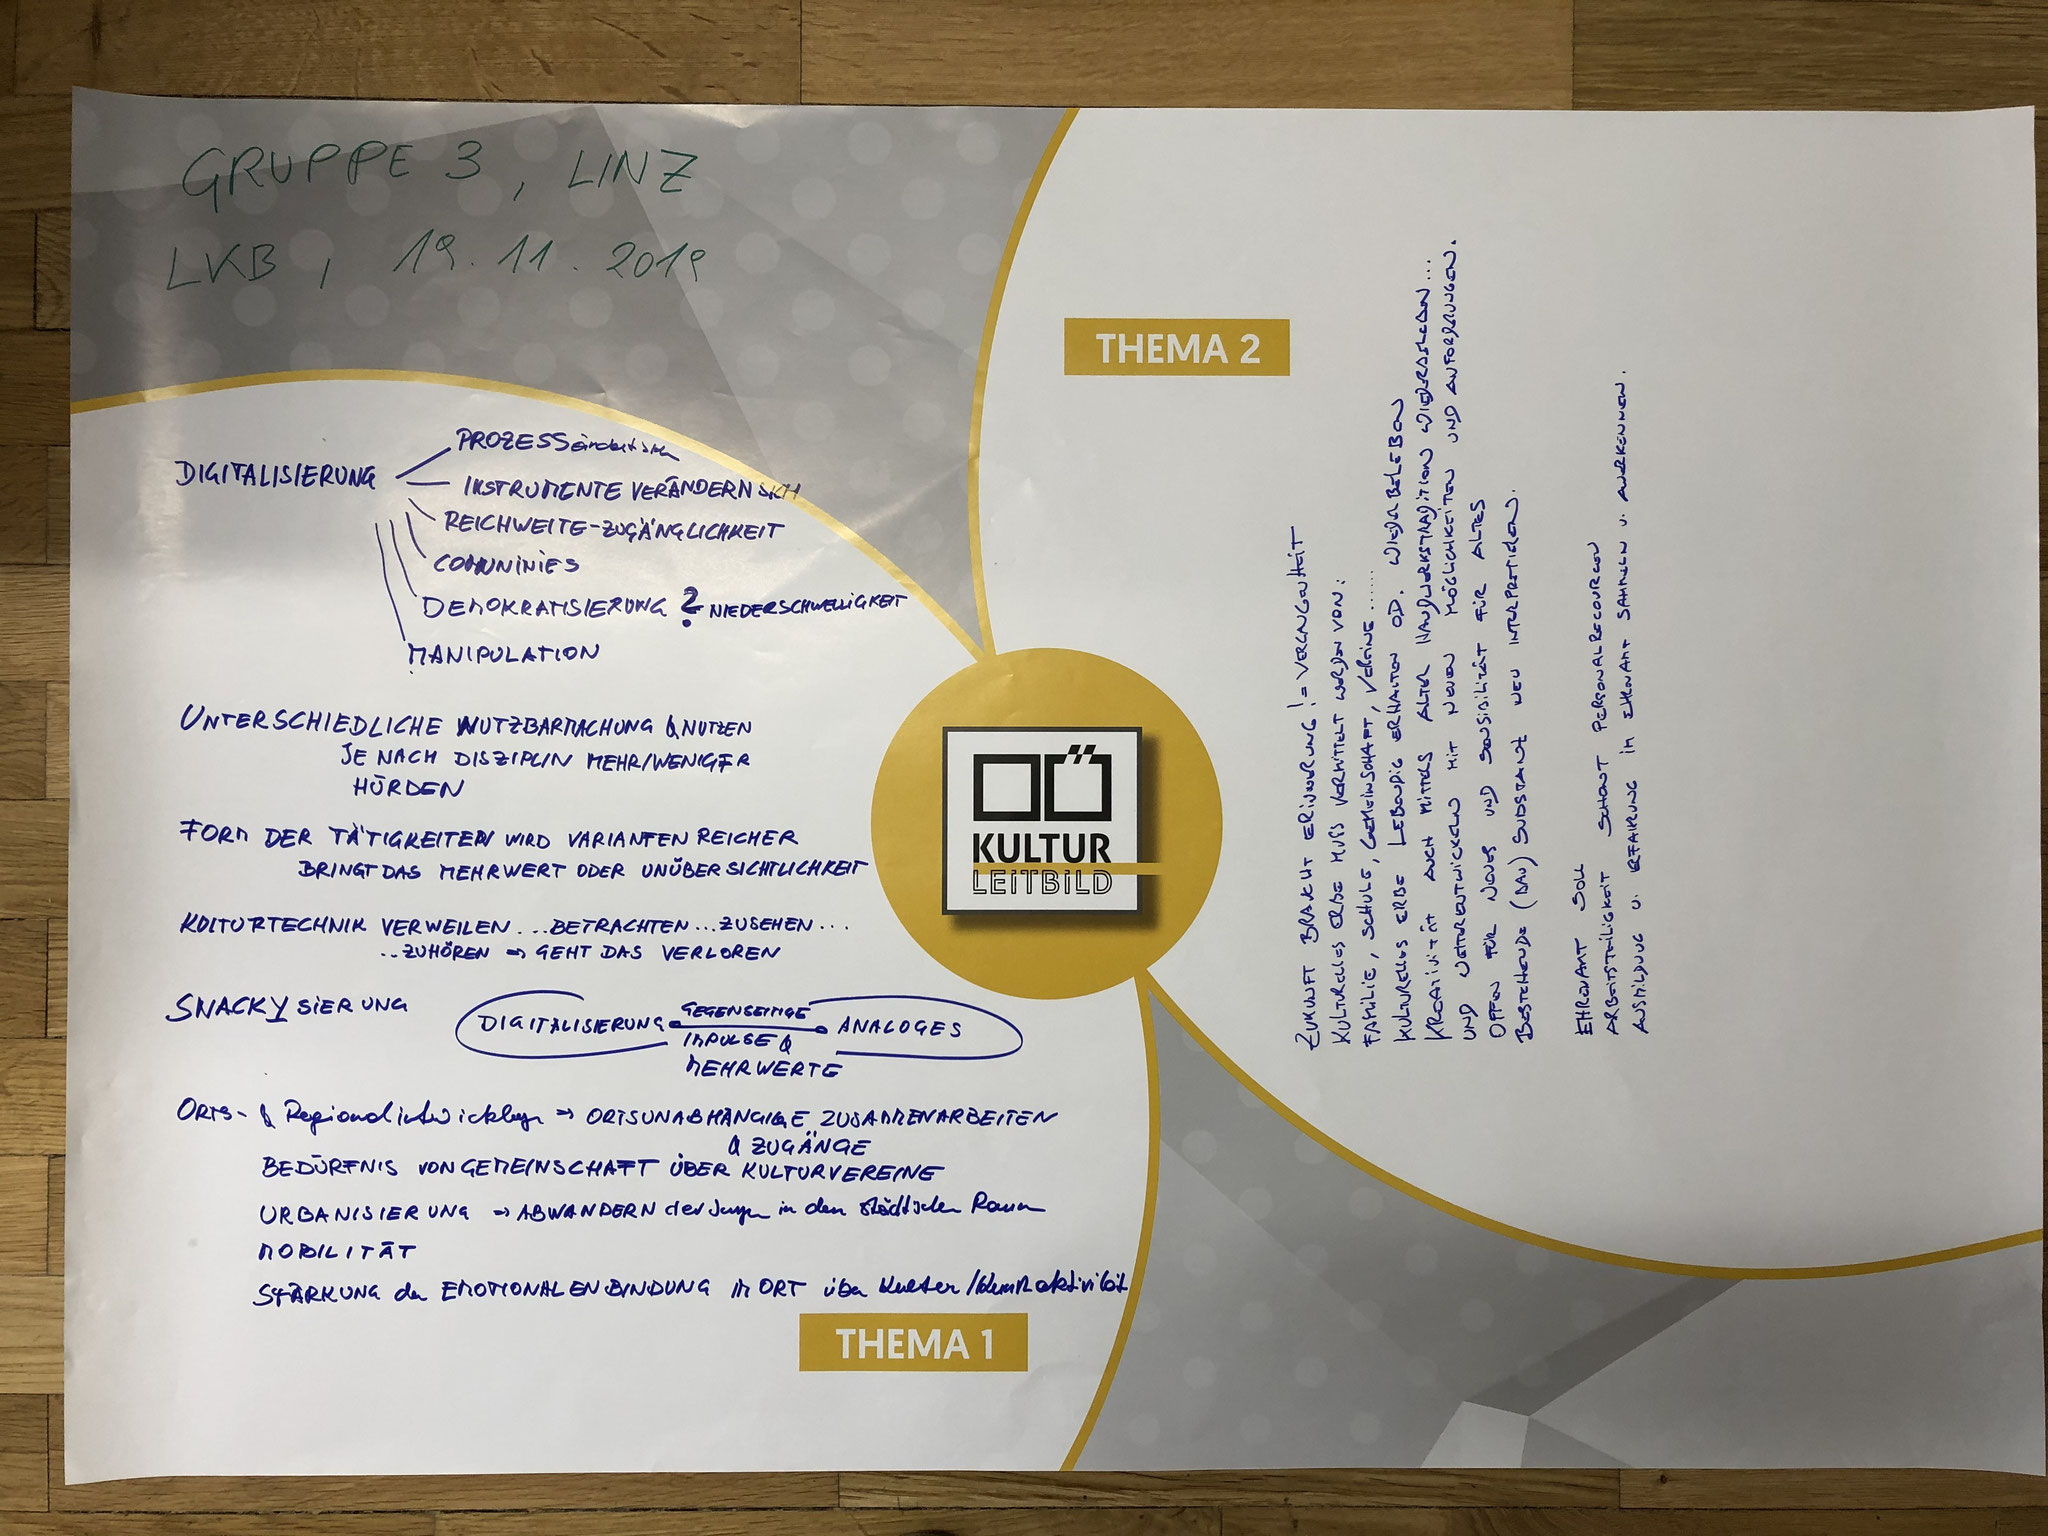 GRUPPE 3, LINZ
LKB, 19.11.2019
DIGITALISIERUNG
PROZESS
INSTRUMENTE VERÄNDERN SICH
REICHWEITE-ZUGÄNGLICHKEIT
COMUNINIES
DEMOKRATISIERUNG ? NIEDERSCHWELLIGKEIT
MANIPULATION
UNTERSCHIEDLICHE NUTZBARMACHUNG & NUTZEN
JE NACH DISZIPLIN MEHR/WENIGER
HÜRDEN
FORM DER TÄTIGKEITEN WIRD VARIANTENREICHER
BRINGT DAS MEHRWERT ODER UNÜBERSICHTLICHKEIT
KULTURTECHNIK VERWEILEN ... BETRACHTEN ... ZUSEHEN ...
.. ZUHÖREN → GEHT DAS VERLOREN
SNACKYSIERUNG
DIGITALISIERUNG GEGENSEITIGE ANALOGES
IMPULSE &
MEHRWERTE
ORTS- & Regionalentwicklung → ORTSUNABHÄNGIGE ZUSAMMENARBEITEN
& ZUGÄNGE
BEDÜRFNIS VON GEMEINSCHAFT ÜBER KULTURVEREINE
URBANISIERUNG → ABWANDERN der Jungen in den städtischen Raum
MOBILITÄT
STÄRKUNG der EMOTIONALEN BINDUNG IM ORT über Kultur/
THEMA 1
OÖ
KULTUR
LEITBILD
THEMA 2
ZUKUNFT BRAUCHT ERINNERUNG! = VERGANGENHEIT
KULTURELLES ERBE MUSS VERMITTELT WERDEN VON:
FAMILIE, SCHULE, GEMEINSCHAFT, VEREINE ......
KULTURELLES ERBE LEBENDIG ERHALTEN OD. WIEDERBELEBEN
KREATIVITÄT AUCH MITTELS ALTER HANDWERKSTRADITION WIEDERBELEBEN ....
UND WEITERENTWICKELN MIT NEUEN MÖGLICHKEITEN UND ANFORDERUNGEN.
OFFEN FÜR NEUES UND SENSIBILITÄT FÜR ALTES
BESTEHENDE (BAU) SUBSTANZ NEU INTERPRETIEREN.
EHRENAMT SOLL
ARBEITSTEILIGKEIT SCHONT PERSONALRECOURCEN
AUSBILDUNG U. ERFAHRUNG in EHRENAMT SAMMELN U. ANERKENNEN.